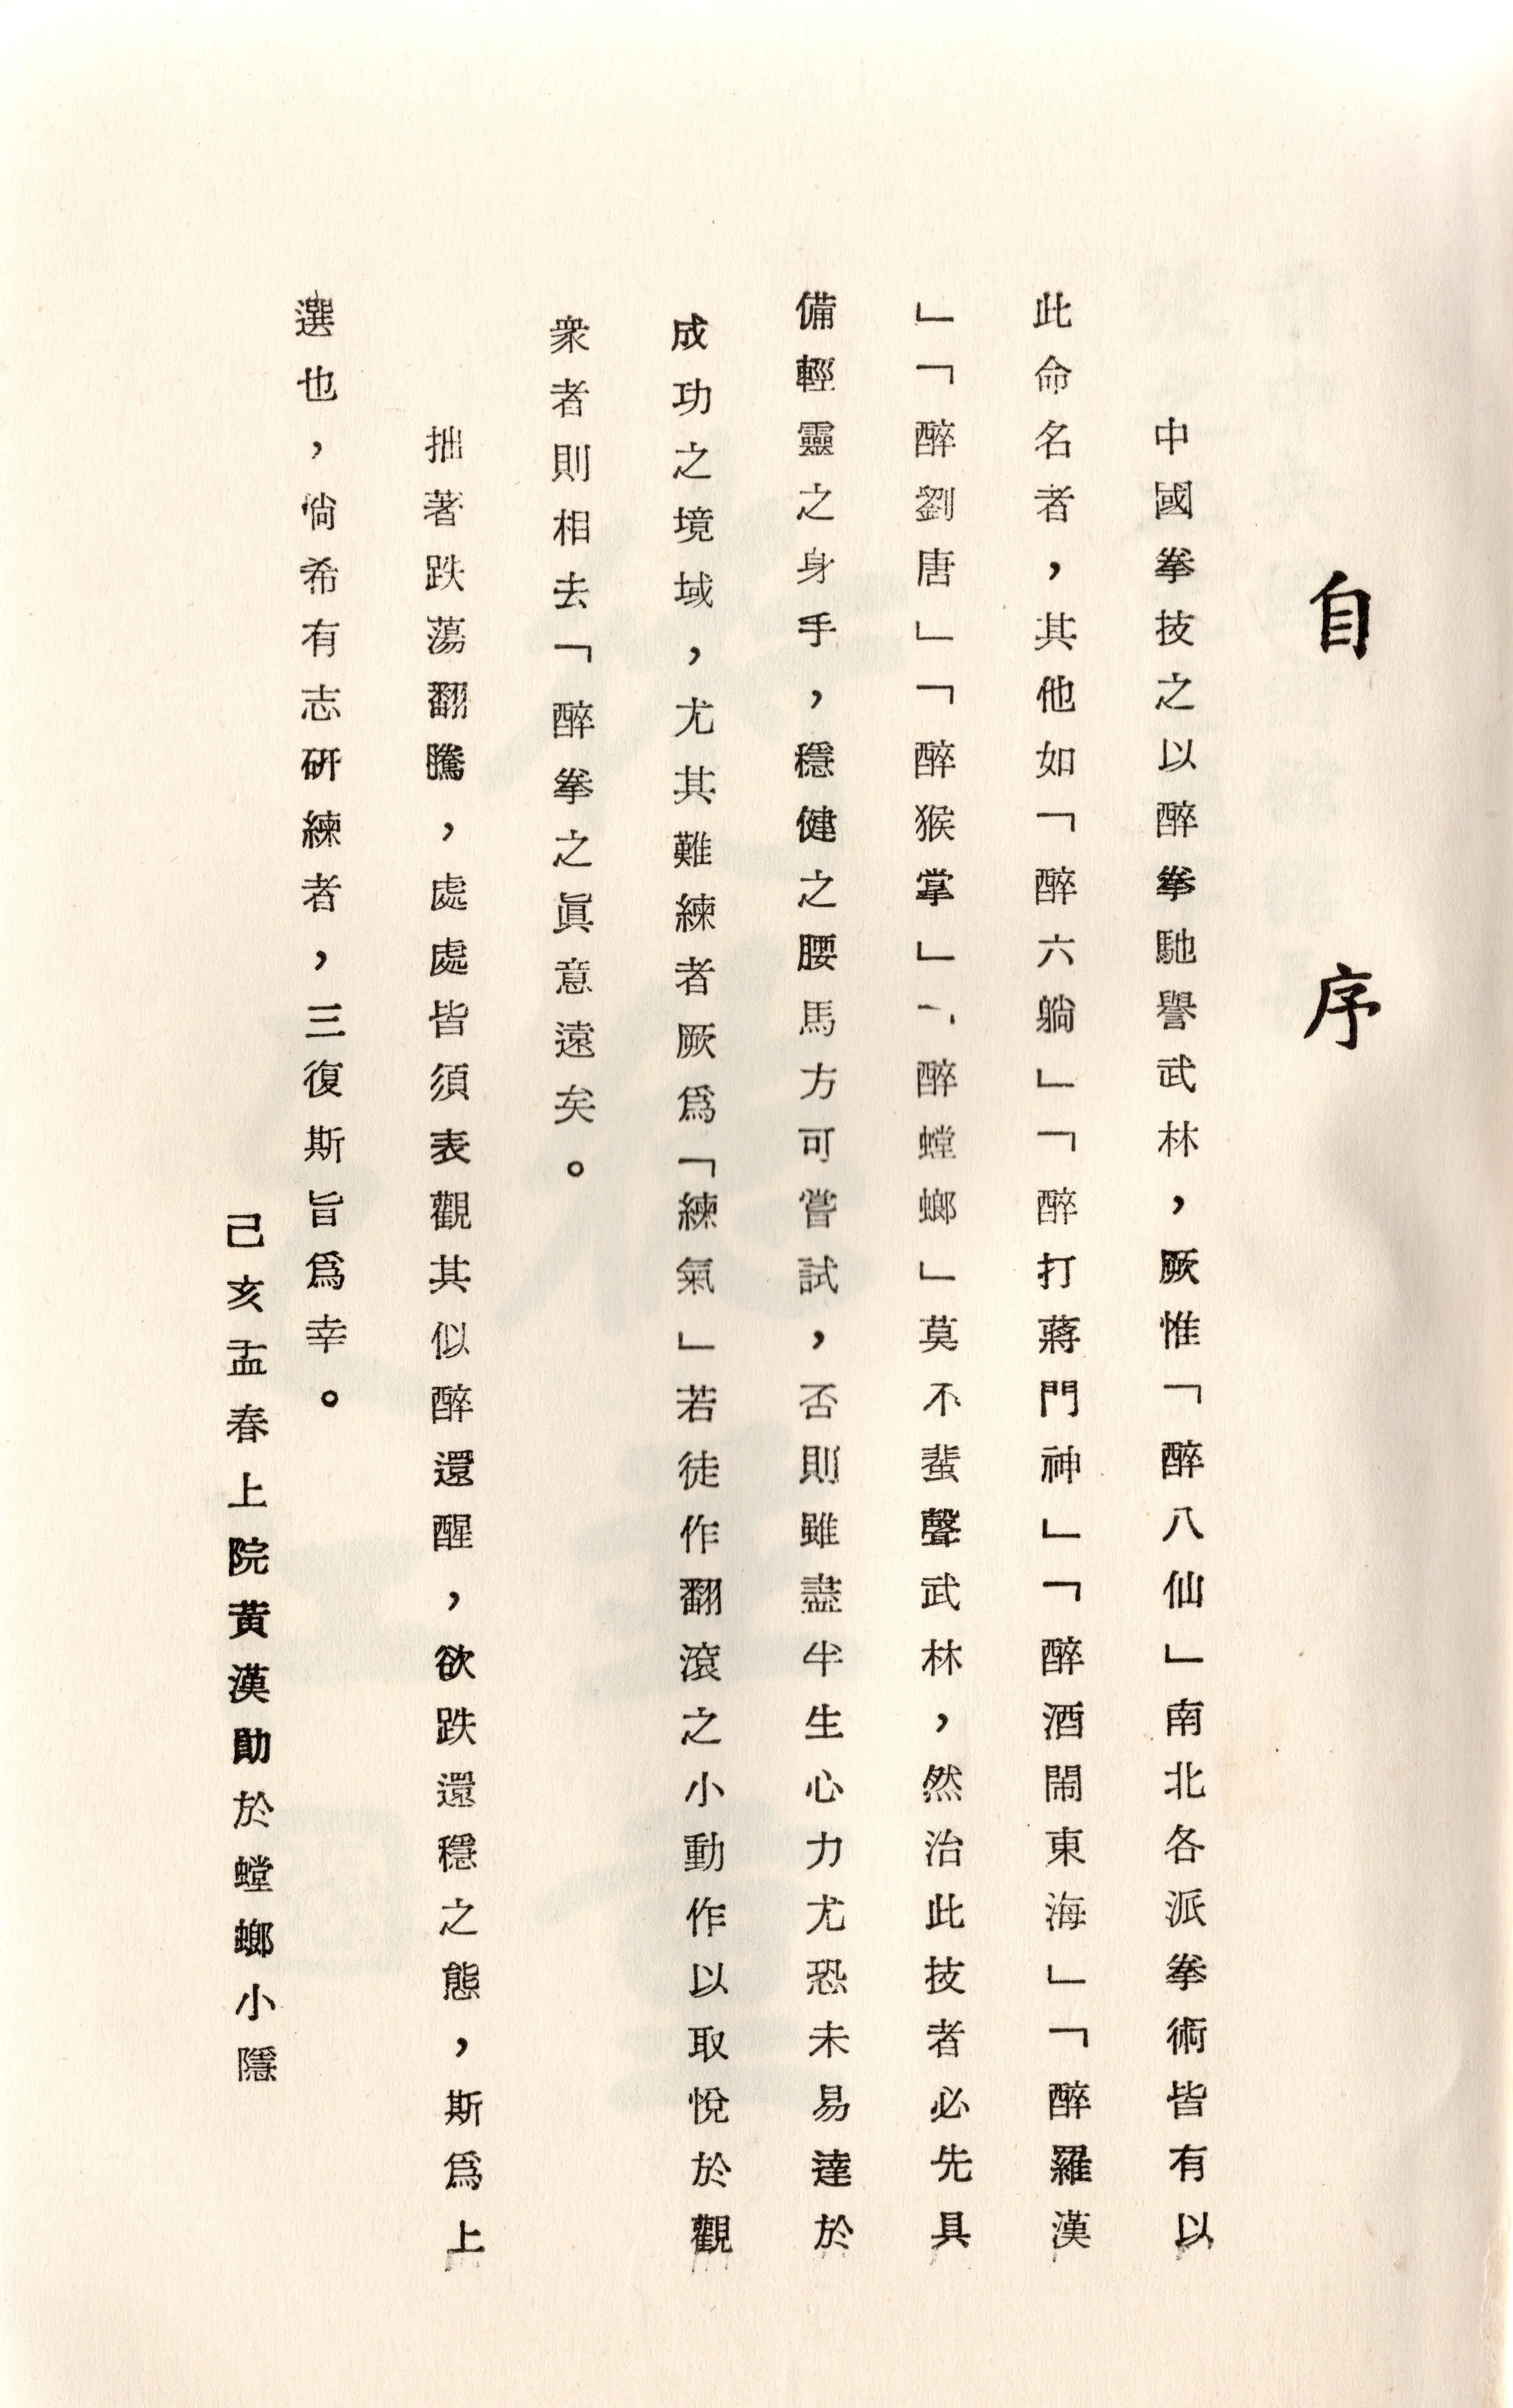 自序
中國拳技之以醉拳馳譽武林，厥惟「醉八仙」南北各派拳術皆有以
此命名者，其他如「醉六躺」「醉打蔣門神」「醉酒鬧東海」「醉羅漢
」「醉劉唐」「醉猴掌」「醉螳螂」莫不蜚聲武林，然治此技者必先具
備輕靈之身手，穩健之腰馬方可嘗試，否則雖盡半生心力尤恐未易達於
成功之境域，尤其難練者厥爲「練氣」若徒作翻滾之小動作以取悅於觀
衆者則相去「醉拳之眞意遠矣。
拙著跌蕩翻騰，處處皆須表觀其似醉還醒，欲跌還穩之態，斯爲上
選也，倘希有志硏練者，三復斯旨爲幸。
己亥孟春上院黃漢勛於螳螂小隱